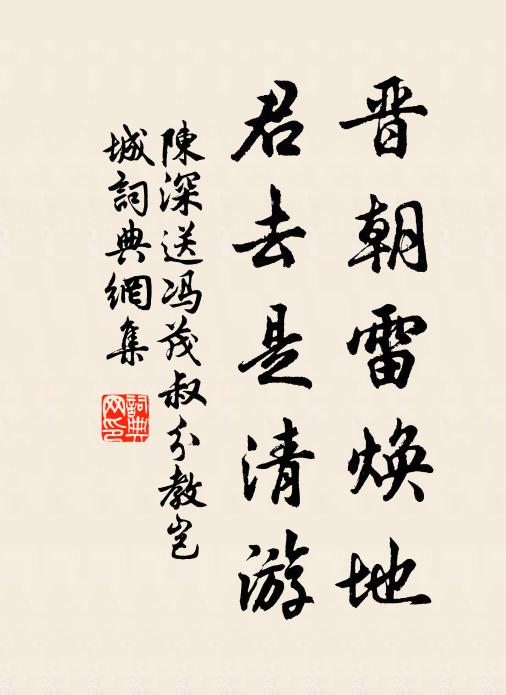 晋朝雷焕地
君去是清游
陳深送冯茂叔分教岂
城詞典網集
詞典网印